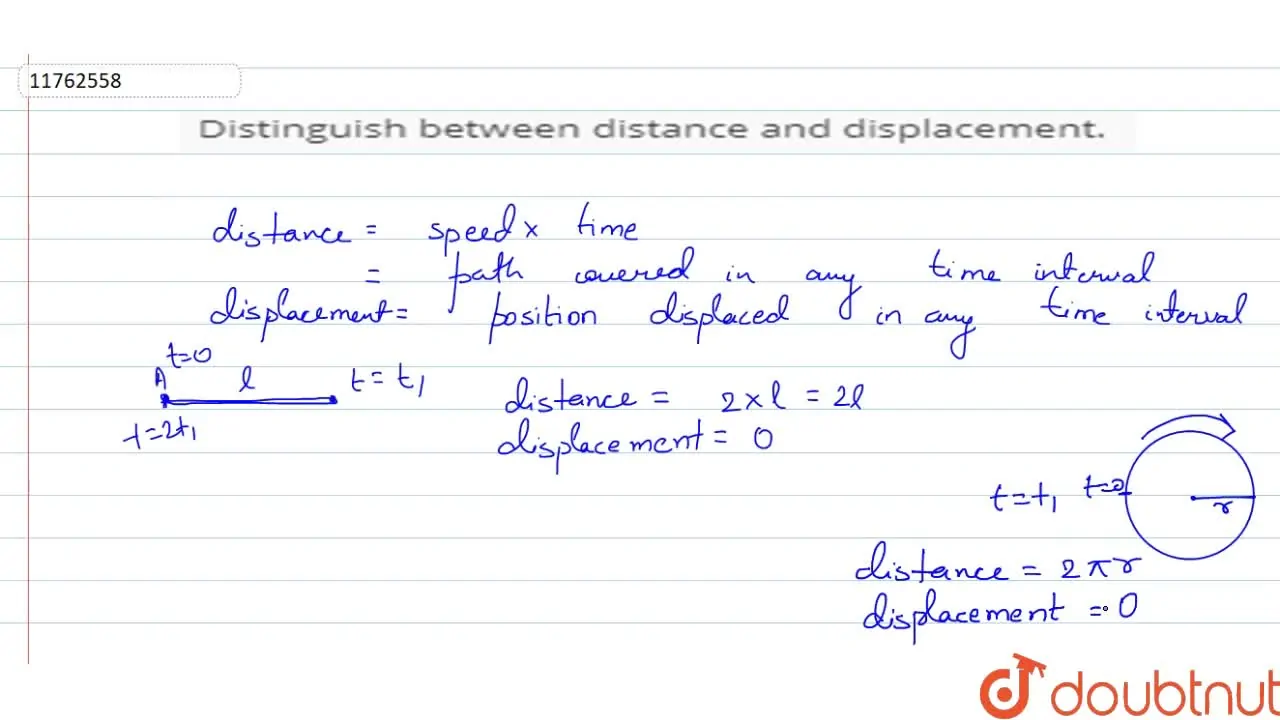 11762558
Distinguish between distance and displacement.
distance = speed × time
= path covered in any time interval
displacement = position displaced in any time interval
t=0
A l t = t₁
t=2t₁
distance = 2×l = 2l
displacement = 0
t=t₁ t=0
r
distance = 2πr
displacement = 0
doubtnut